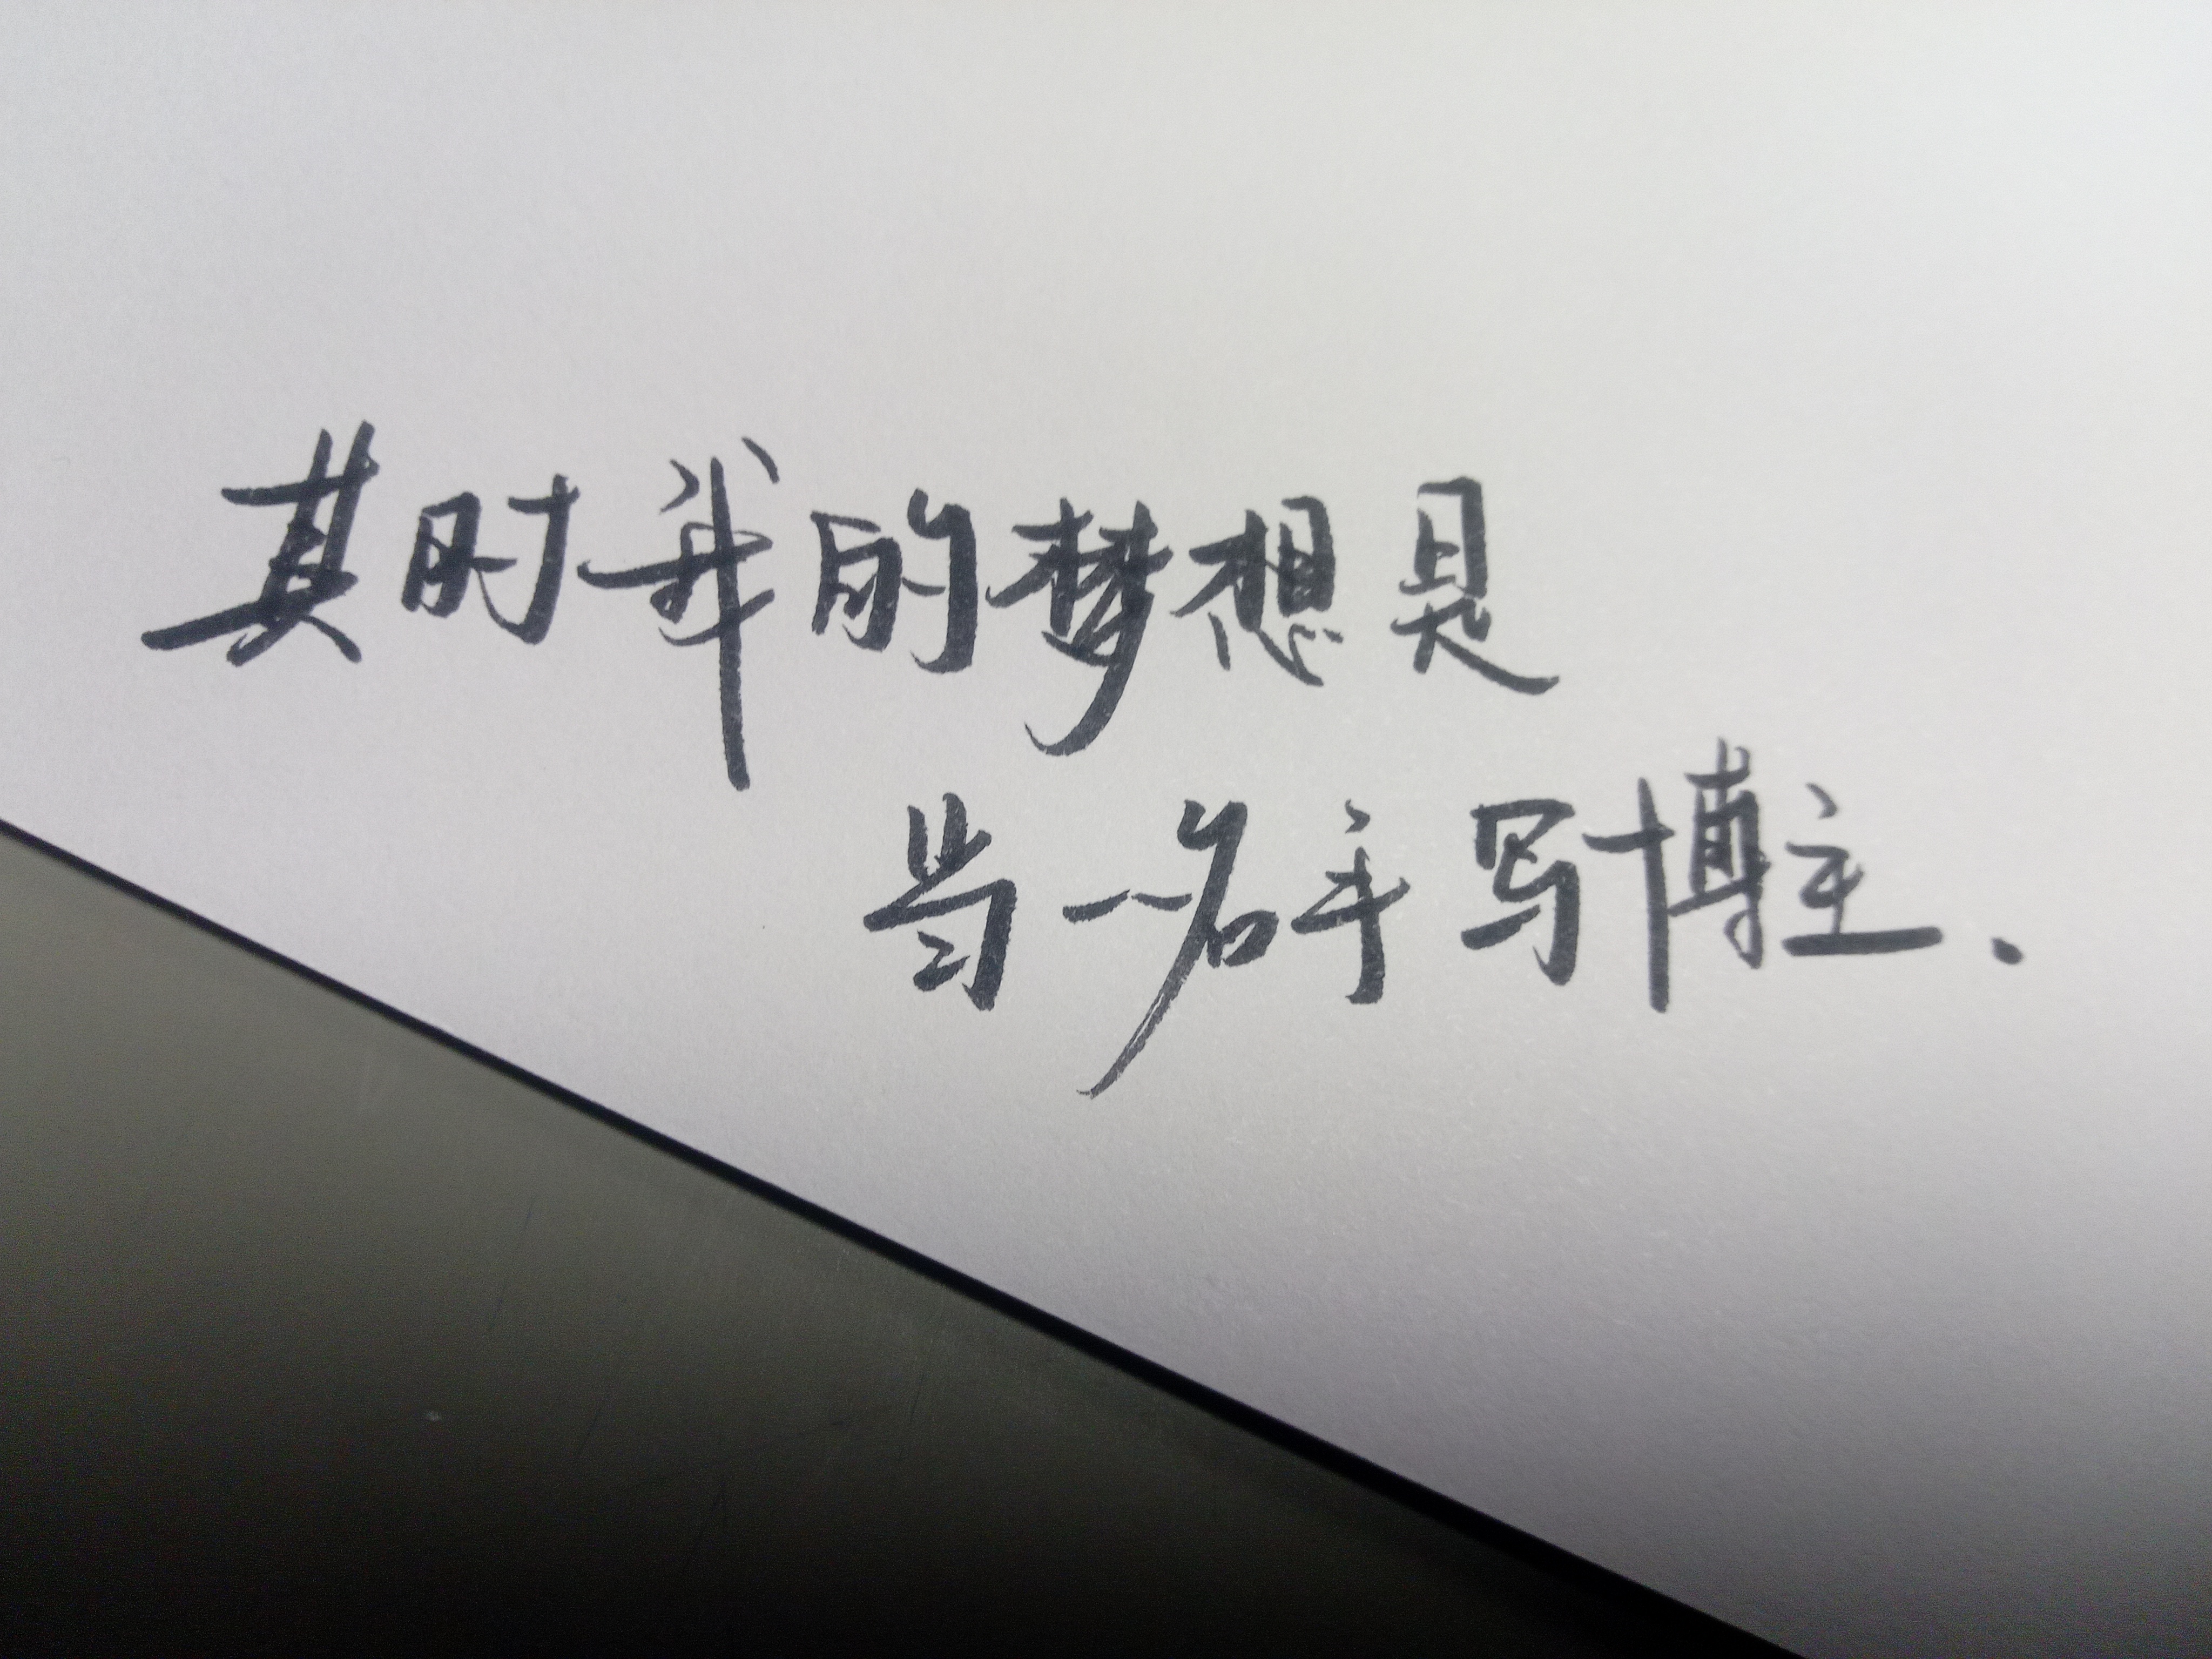 其时我的梦想是
当一名手写博主.